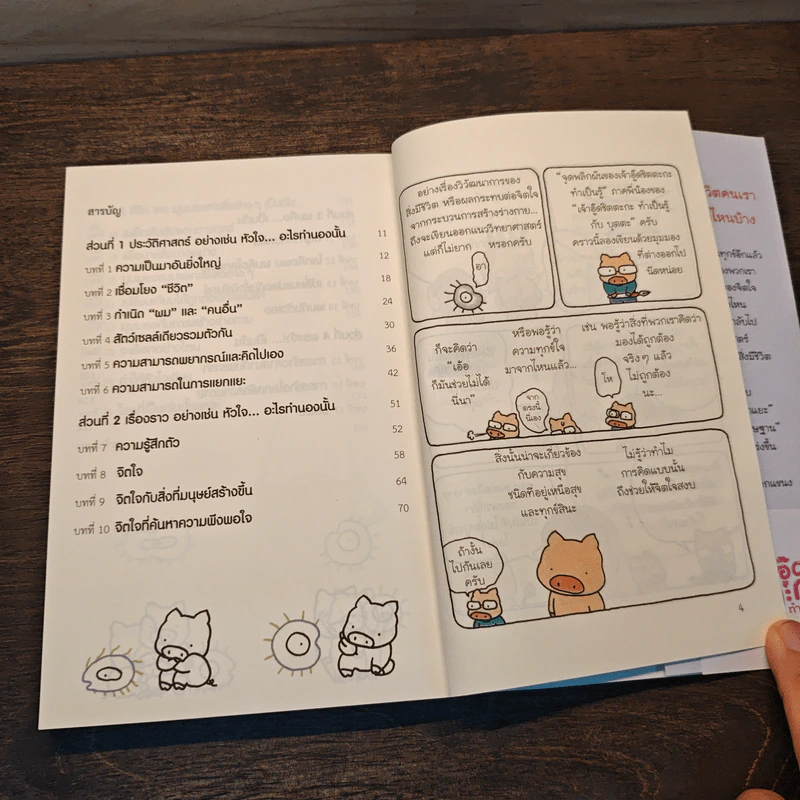 สารบัญ
ส่วนที่ 1 ประวัติศาสตร์ อย่างเช่น หัวใจ... อะไรทำนองนั้น 11
บทที่ 1 ความเป็นมาอันยิ่งใหญ่ 12
บทที่ 2 เชื่อมโยง “ชีวิต” 18
บทที่ 3 กำเนิด “ผม” และ “คนอื่น” 24
บทที่ 4 สัตว์เซลล์เดียวรวมตัวกัน 30
บทที่ 5 ความสามารถพยากรณ์และคิดไปเอง 36
บทที่ 6 ความสามารถในการแยกแยะ 42
ส่วนที่ 2 เรื่องราว อย่างเช่น หัวใจ... อะไรทำนองนั้น 51
บทที่ 7 ความรู้สึกตัว 52
บทที่ 8 จิตใจ 58
บทที่ 9 จิตใจกับสิ่งที่มนุษย์สร้างขึ้น 64
บทที่ 10 จิตใจที่ค้นหาความพึงพอใจ 70
อย่างเรื่องวิวัฒนาการของ
สิ่งมีชีวิต หรือผลกระทบต่อจิตใจ
จากกระบวนการสร้างร่างกาย...
ถึงจะเขียนออกแนววิทยาศาสตร์
แต่ก็ไม่ยาก หรอกครับ
อา
“จุดพลิกผันของเจ้าอู๊ดชิตตะกะ
ทำเป็นรู้” ภาคพี่น้องของ
“เจ้าอู๊ดชิตตะกะ ทำเป็นรู้
กับ บุตตะ” ครับ
คราวนี้ลองเขียนด้วยมุมมอง
ที่ต่างออกไป
นิดหน่อย
ก็จะคิดว่า
“เอ้อ
ก็มันช่วยไม่ได้
นี่นา”
หรือพอรู้ว่า
ความทุกข์ใจ
มาจากไหนแล้ว...
จาก
ตรงนี้
นี่เอง
เช่น พอรู้ว่าสิ่งที่พวกเราคิดว่า
มองได้ถูกต้อง
จริงๆ แล้ว
ไม่ถูกต้อง
นะ...
โห
สิ่งนั้นน่าจะเกี่ยวข้อง
กับความสุข
ชนิดที่อยู่เหนือสุข
และทุกข์สินะ
ไม่รู้ว่าทำไม
การคิดแบบนั้น
ถึงช่วยให้จิตใจสงบ
ถ้างั้น
ไปกันเลย
ครับ
4